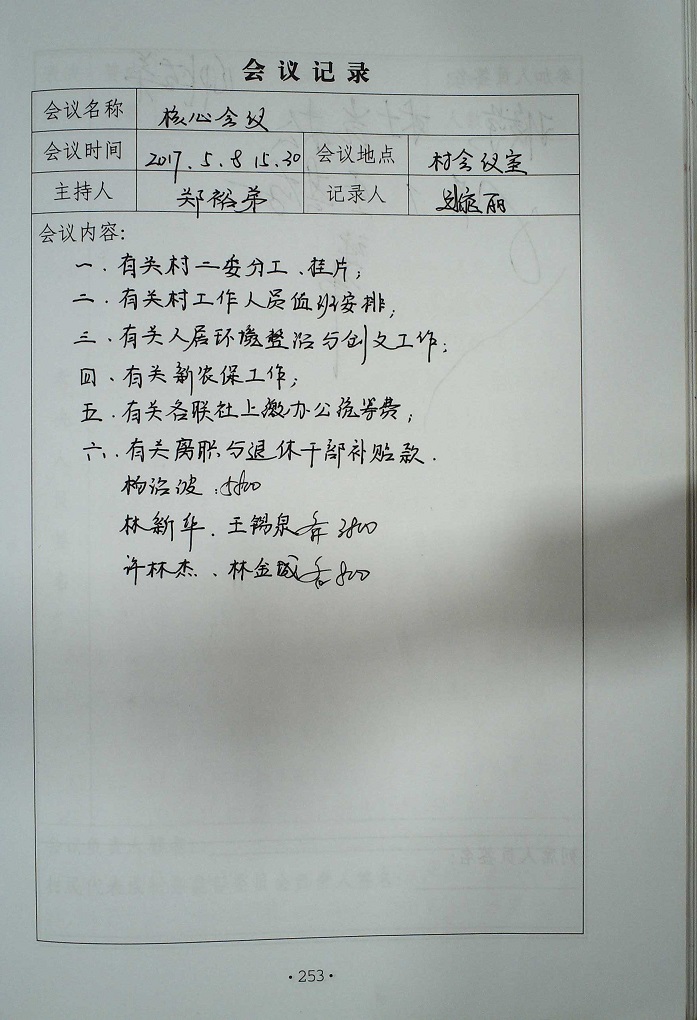 会议记录
会议名称 核心会议
会议时间 2017.5.8 15.30 会议地点 村会议室
主持人 郑裕弟 记录人 丽
会议内容:
一.有关村二委分工、挂片;
二.有关村工作人员值班安排;
三.有关人居环境整治与创文工作;
四.有关新农保工作;
五.有关各联社上缴办公统筹费;
六.有关离职与退休干部补贴款.
杨治波:
林新华.王锡泉各
许林杰、林金城各800
·253·